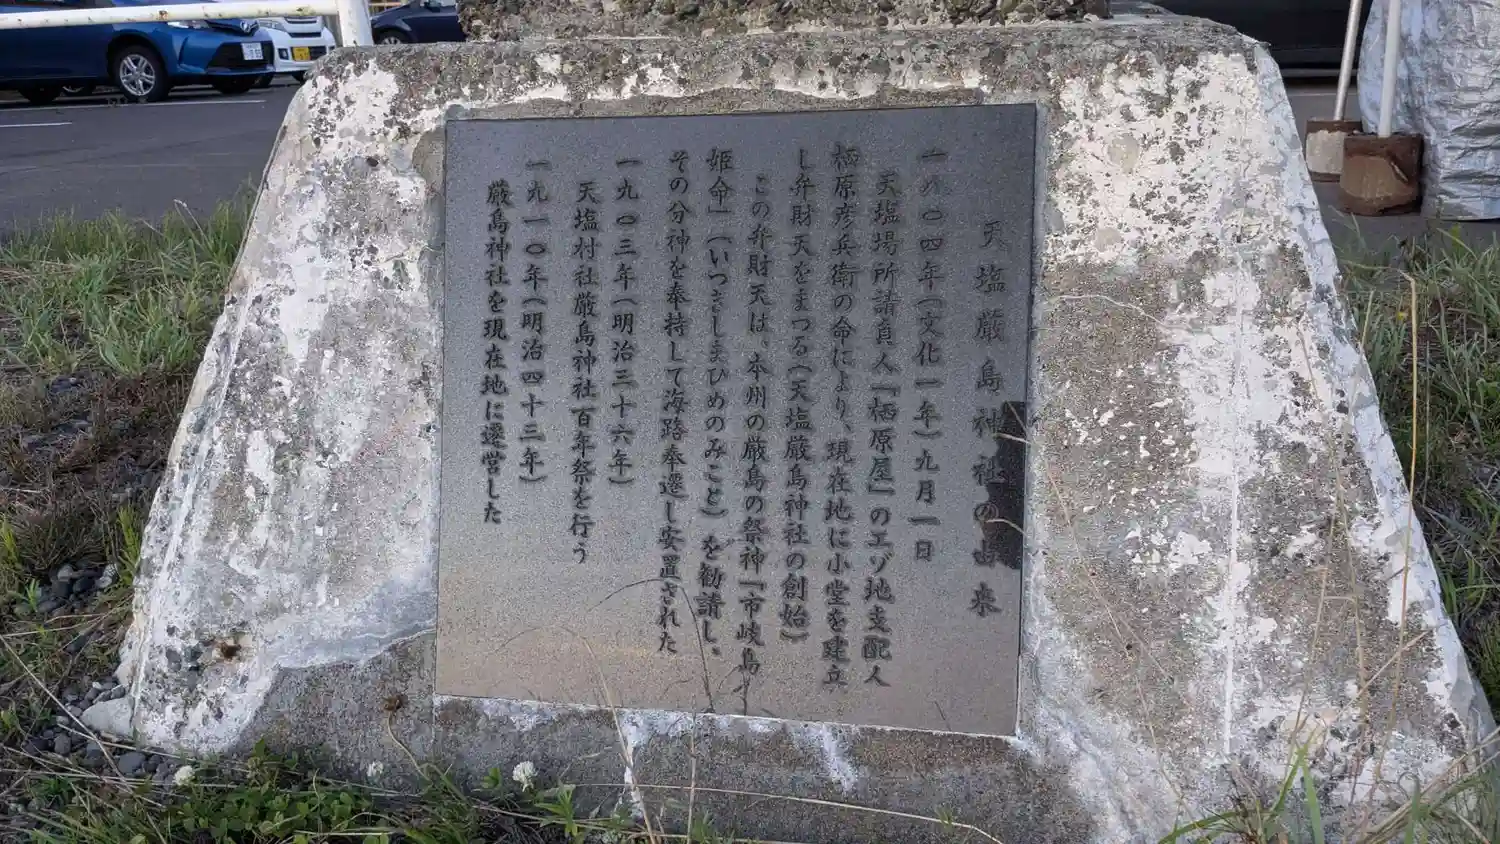 天塩厳島神社の由来
一八〇四年(文化一年)九月一日
天塩場所請負人「栖原屋」のエゾ地支配人
栖原彦兵衛の命により、現在地に小堂を建立
し弁財天をまつる(天塩厳島神社の創始)
この弁財天は、本州の厳島の祭神「市岐島
姫命」(いつきしまひめのみこと)を勧請し、
その分神を奉持して海路奉遷し安置された
一九〇三年(明治三十六年)
天塩村社厳島神社百年祭を行う
一九一〇年(明治四十三年)
厳島神社を現在地に遷営した